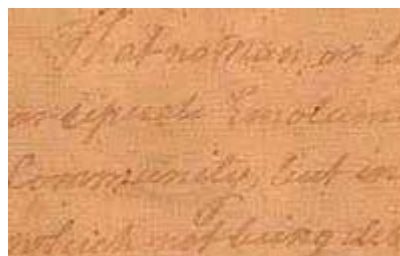 That no man, or
or separate Emolum
Community, but in
which not being des